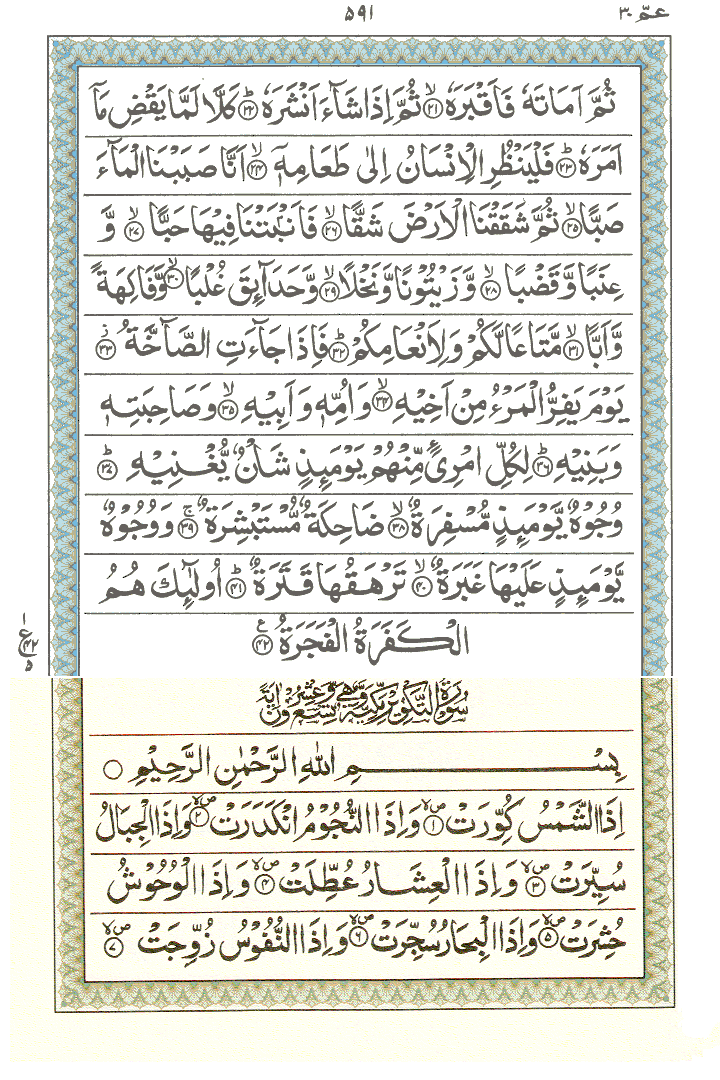 عمّ ۳۰
۵۹۱
ثُمَّ اَمَاتَهٗ فَاَقْبَرَهٗ ۙ﴿۲۱﴾ ثُمَّ اِذَا شَآءَ اَنْشَرَهٗ ؕ﴿۲۲﴾ كَلَّا لَمَّا يَقْضِ مَاۤ
اَمَرَهٗ ؕ﴿۲۳﴾ فَلْيَنْظُرِ الْاِنْسَانُ اِلٰى طَعَامِهٖۤ ۙ﴿۲۴﴾ اَنَّا صَبَبْنَا الْمَآءَ
صَبًّا ۙ﴿۲۵﴾ ثُمَّ شَقَقْنَا الْاَرْضَ شَقًّا ۙ﴿۲۶﴾ فَاَنْۢبَتْنَا فِيْهَا حَبًّا ۙ﴿۲۷﴾ وَّ
عِنَبًا وَّ قَضْبًا ۙ﴿۲۸﴾ وَّ زَيْتُوْنًا وَّ نَخْلًا ۙ﴿۲۹﴾ وَّ حَدَآئِقَ غُلْبًا ۙ﴿۳۰﴾ وَّ فَاكِهَةً
وَّ اَبًّا ۙ﴿۳۱﴾ مَّتَاعًا لَّكُمْ وَ لِاَنْعَامِكُمْ ؕ﴿۳۲﴾ فَاِذَا جَآءَتِ الصَّآخَّةُ ؗ﴿۳۳﴾
يَوْمَ يَفِرُّ الْمَرْءُ مِنْ اَخِيْهِ ۙ﴿۳۴﴾ وَ اُمِّهٖ وَ اَبِيْهِ ۙ﴿۳۵﴾ وَ صَاحِبَتِهٖ
وَ بَنِيْهِ ؕ﴿۳۶﴾ لِكُلِّ امْرِئٍ مِّنْهُمْ يَوْمَئِذٍ شَاْنٌ يُّغْنِيْهِ ؕ﴿۳۷﴾
وُجُوْهٌ يَّوْمَئِذٍ مُّسْفِرَةٌ ۙ﴿۳۸﴾ ضَاحِكَةٌ مُّسْتَبْشِرَةٌ ۚ﴿۳۹﴾ وَ وُجُوْهٌ
يَّوْمَئِذٍ عَلَيْهَا غَبَرَةٌ ۙ﴿۴۰﴾ تَرْهَقُهَا قَتَرَةٌ ؕ﴿۴۱﴾ اُولٰٓئِكَ هُمُ
الْكَفَرَةُ الْفَجَرَةُ ﴿۴۲﴾ ع
۱
ع ۴۲
۵
سُوْرَةُ التَّكْوِيْرِ مَكِّيَّةٌ وَّهِيَ تِسْعٌ وَّعِشْرُوْنَ اٰيَةً
بِسْمِ اللّٰهِ الرَّحْمٰنِ الرَّحِيْمِ ○
اِذَا الشَّمْسُ كُوِّرَتْ ﴿۱﴾ صلا وَ اِذَا النُّجُوْمُ انْكَدَرَتْ ﴿۲﴾ صلا وَ اِذَا الْجِبَالُ
سُيِّرَتْ ﴿۳﴾ صلا وَ اِذَا الْعِشَارُ عُطِّلَتْ ﴿۴﴾ صلا وَ اِذَا الْوُحُوْشُ
حُشِرَتْ ﴿۵﴾ صلا وَ اِذَا الْبِحَارُ سُجِّرَتْ ﴿۶﴾ صلا وَ اِذَا النُّفُوْسُ زُوِّجَتْ ﴿۷﴾ صلا